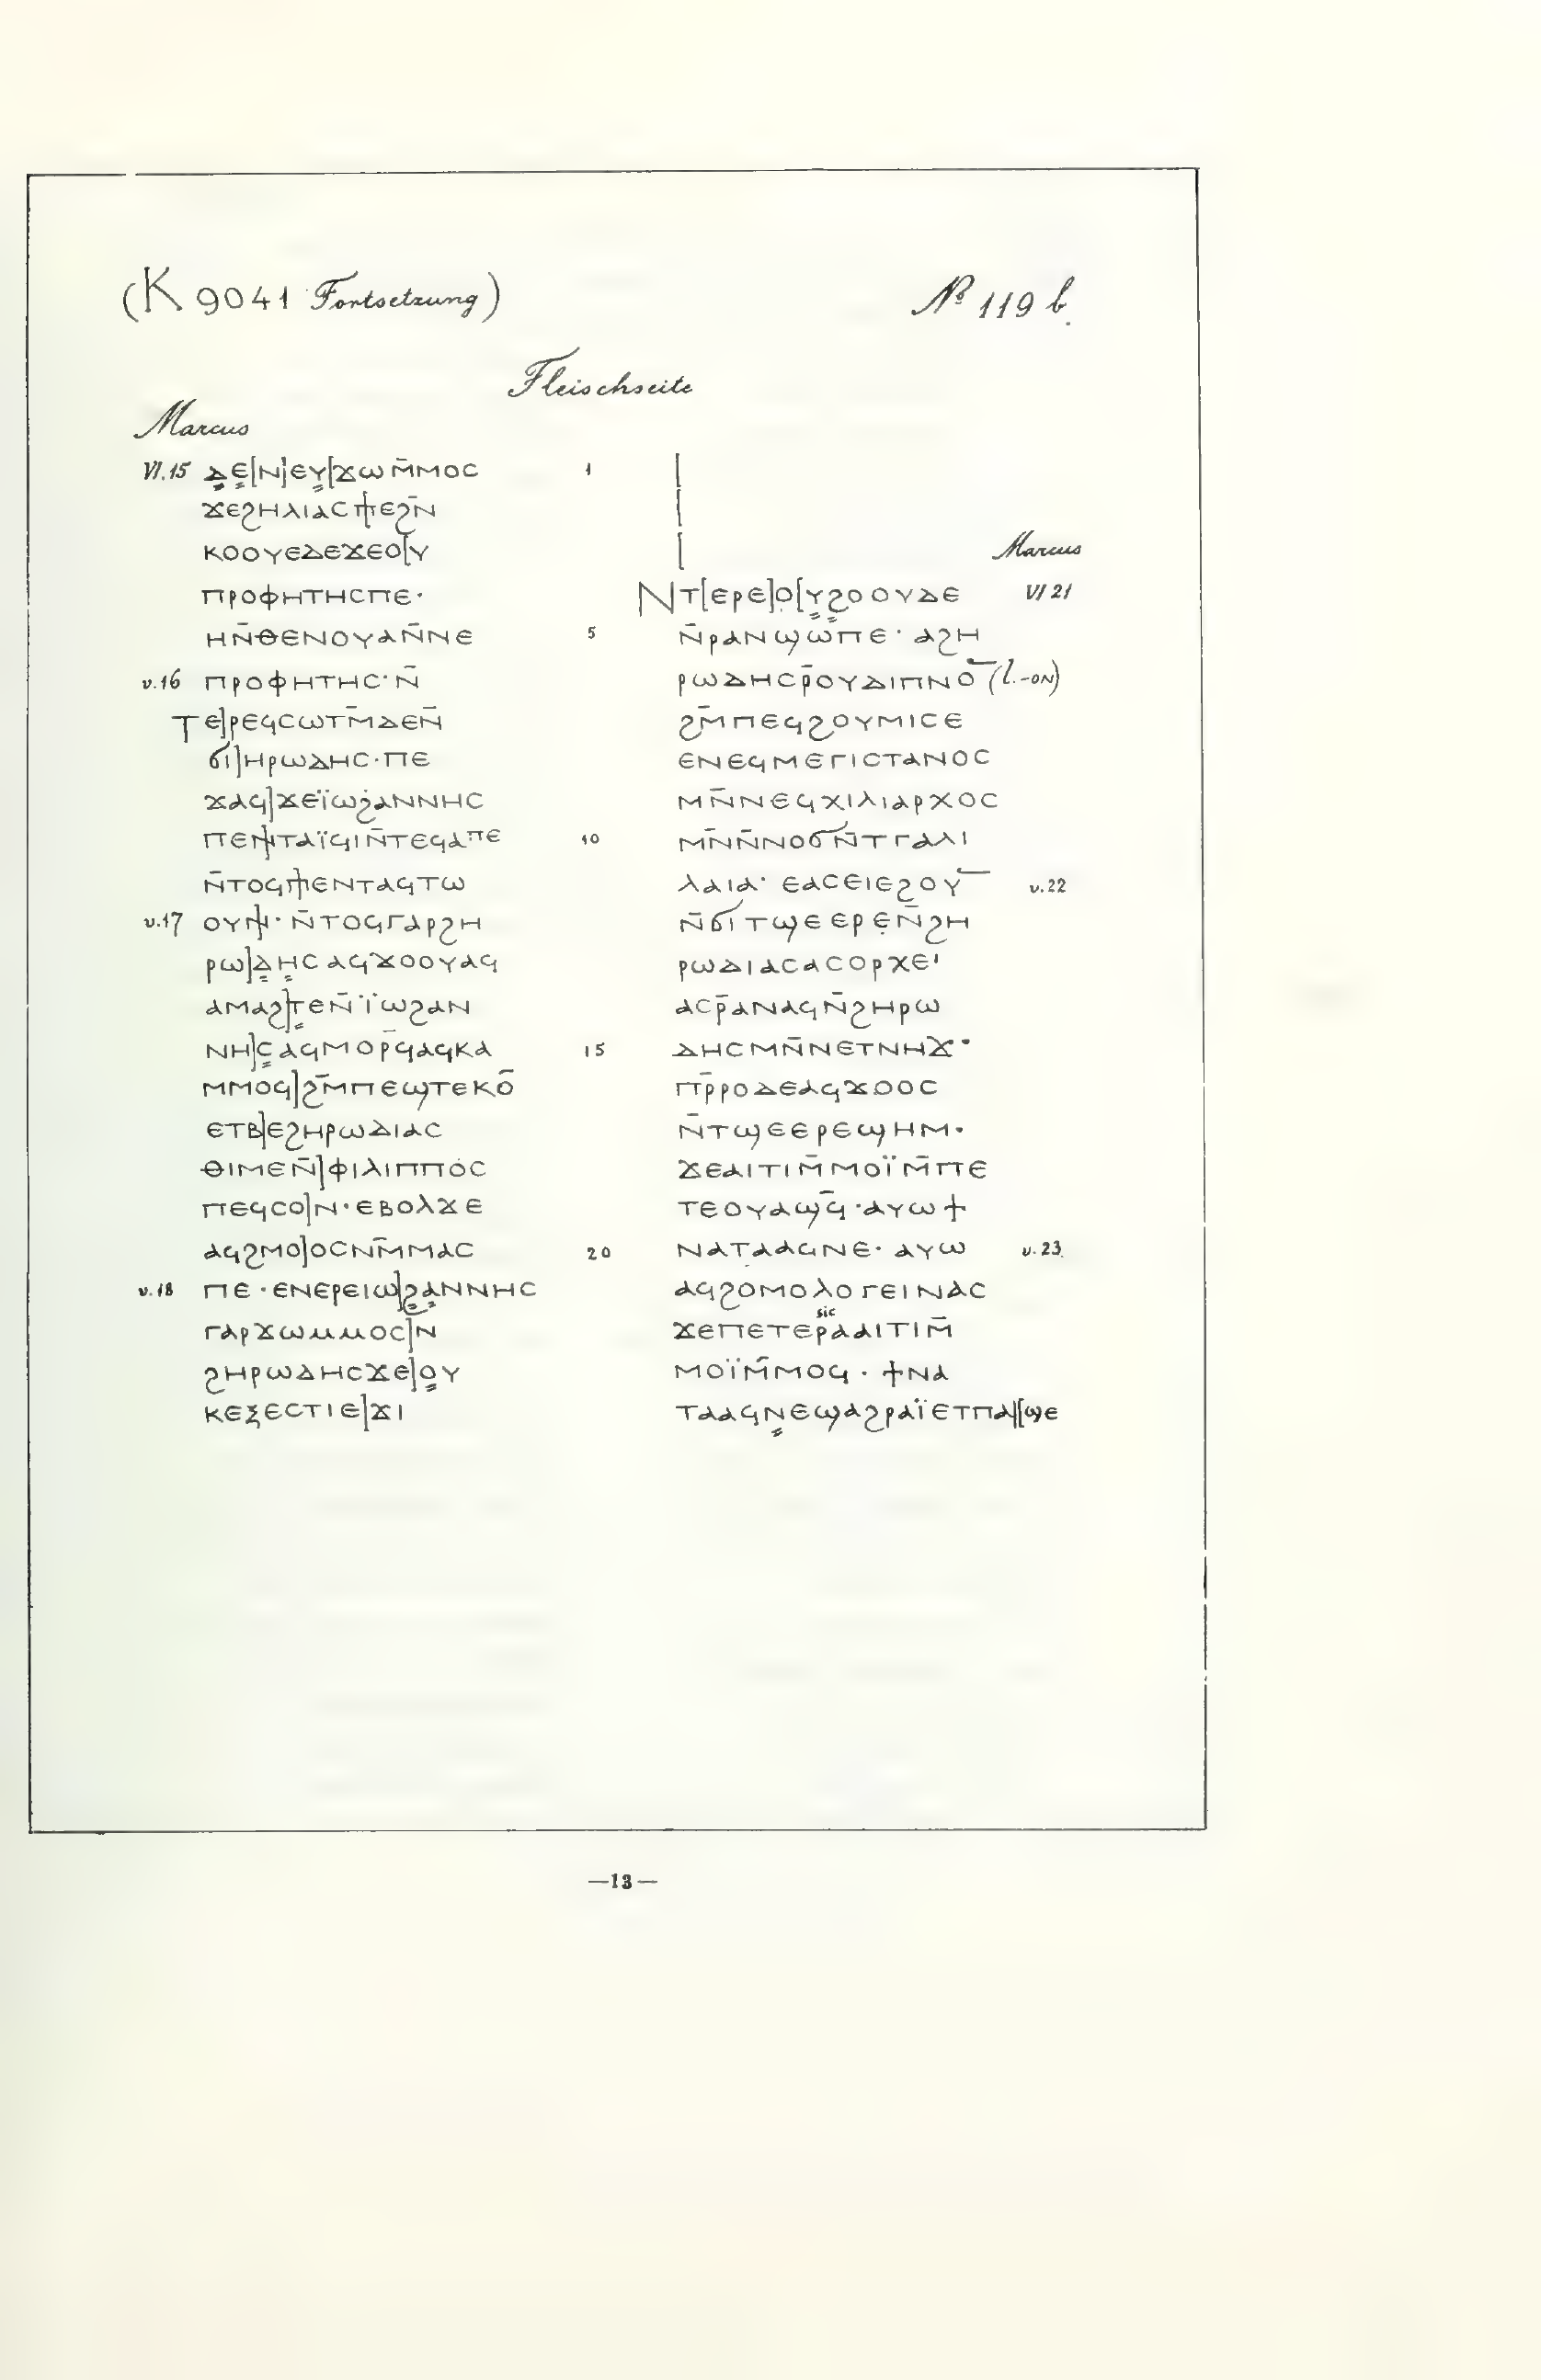 (K 9041 Fortsetzung)
№ 119 b.
Fleischseite
Marcus
VI.15 ⲇⲉ[ⲛ]ⲉⲩ[ϫⲱⲙ̄ⲙⲟⲥ 1
ϫⲉϩⲏⲗⲓⲁⲥⲡⲉϩⲛ̄
ⲕⲟⲟⲩⲉⲇⲉϫⲉⲟ[ⲩ
ⲡⲣⲟⲫⲏⲧⲏⲥⲡⲉ·
ⲏⲛ̄ⲑⲉⲛⲟⲩⲁⲛ̄ⲛⲉ 5
v.16 ⲡⲣⲟⲫⲏⲧⲏⲥ·ⲛ̄
ⲧⲉ]ⲣⲉϥⲥⲱⲧⲙ̄ⲇⲉⲛ̄
ϭⲓ]ⲏⲣⲱⲇⲏⲥ·ⲡⲉ
ϫⲁϥ]ϫⲉⲓ̈ⲱϩⲁⲛⲛⲏⲥ
ⲡⲉⲛⲧⲁⲓ̈ϥⲓⲛ̄ⲧⲉϥⲁⲡⲉ 10
ⲛ̄ⲧⲟϥⲡⲉⲛⲧⲁϥⲧⲱ
v.17 ⲟⲩⲛ· ⲛ̄ⲧⲟϥⲅⲁⲣϩⲏ
ⲣⲱ]ⲇⲏⲥⲁϥϫⲟⲟⲩⲁϥ
ⲁⲙⲁϩ]ⲧⲉⲛ̄ⲓ̈ⲱϩⲁⲛ
ⲛⲏ]ⲥⲁϥⲙⲟⲣϥ̄ⲁϥⲕⲁ 15
ⲙⲙⲟϥ]ϩⲙ̄ⲡⲉϣⲧⲉⲕⲟ̄
ⲉⲧⲃ]ⲉϩⲏⲣⲱⲇⲓⲁⲥ
ⲑⲓⲙⲉⲛ̄]ⲫⲓⲗⲓⲡⲡⲟⲥ
ⲡⲉϥⲥⲟ]ⲛ·ⲉⲃⲟⲗϫⲉ
ⲁϥϩⲙⲟ]ⲟⲥⲛⲙ̄ⲙⲁⲥ 20
v.18 ⲡⲉ·ⲉⲛⲉⲣⲉⲓⲱ]ϩⲁⲛⲛⲏⲥ
ⲅⲁⲣϫⲱⲙⲙⲟⲥ]ⲛ̄
ϩⲏⲣⲱⲇⲏⲥϫⲉ]ⲟⲩ
ⲕⲉⲝⲉⲥⲧⲓⲉ]ϫⲓ
Marcus
ⲛⲧ[ⲉⲣⲉ]ⲟ[ⲩϩⲟⲟⲩⲇⲉ VI 21
ⲛ̄ⲣⲁⲛϣⲱⲡⲉ· ⲁϩⲏ
ⲣⲱⲇⲏⲥⲣ̄ⲟⲩⲇⲓⲡⲛⲟ̄ (l.-ⲟⲛ)
ϩⲙ̄ⲡⲉϥϩⲟⲩⲙⲓⲥⲉ
ⲉⲛⲉϥⲙⲉⲅⲓⲥⲧⲁⲛⲟⲥ
ⲙⲛ̄ⲛⲉϥⲭⲓⲗⲓⲁⲣⲭⲟⲥ
ⲙⲛ̄ⲛ̄ⲛⲟϭⲛ̄ⲧⲅⲁⲗⲓ
ⲗⲁⲓⲁ· ⲉⲁⲥⲉⲓⲉϩⲟⲩ̄ v.22
ⲛ̄ϭⲓⲧϣⲉⲉⲣⲉⲛ̄ϩⲏ
ⲣⲱⲇⲓⲁⲥⲁⲥⲟⲣⲭⲉⲓ
ⲁⲥⲣ̄ⲁⲛⲁϥⲛ̄ϩⲏⲣⲱ
ⲇⲏⲥⲙⲛ̄ⲛⲉⲧⲛⲏϫ·
ⲡⲣ̄ⲣⲟⲇⲉⲁϥϫⲟⲟⲥ
ⲛ̄ⲧϣⲉⲉⲣⲉϣⲏⲙ·
ϫⲉⲁⲓⲧⲓⲙ̄ⲙⲟⲓ̈ⲙ̄ⲡⲉ
ⲧⲉⲟⲩⲁϣϥ̄·ⲁⲩⲱϯ
ⲛⲁⲧⲁⲁϥⲛⲉ· ⲁⲩⲱ v.23.
ⲁϥϩⲟⲙⲟⲗⲟⲅⲉⲓⲛⲁⲥ
sic
ϫⲉⲡⲉⲧⲉⲣⲁⲁⲓⲧⲓⲙ̄
ⲙⲟⲓ̈ⲙ̄ⲙⲟϥ·ϯⲛⲁ
ⲧⲁⲁϥⲛⲉϣⲁϩⲣⲁⲓ̈ⲉⲧⲡⲁ[ϣⲉ
—13—